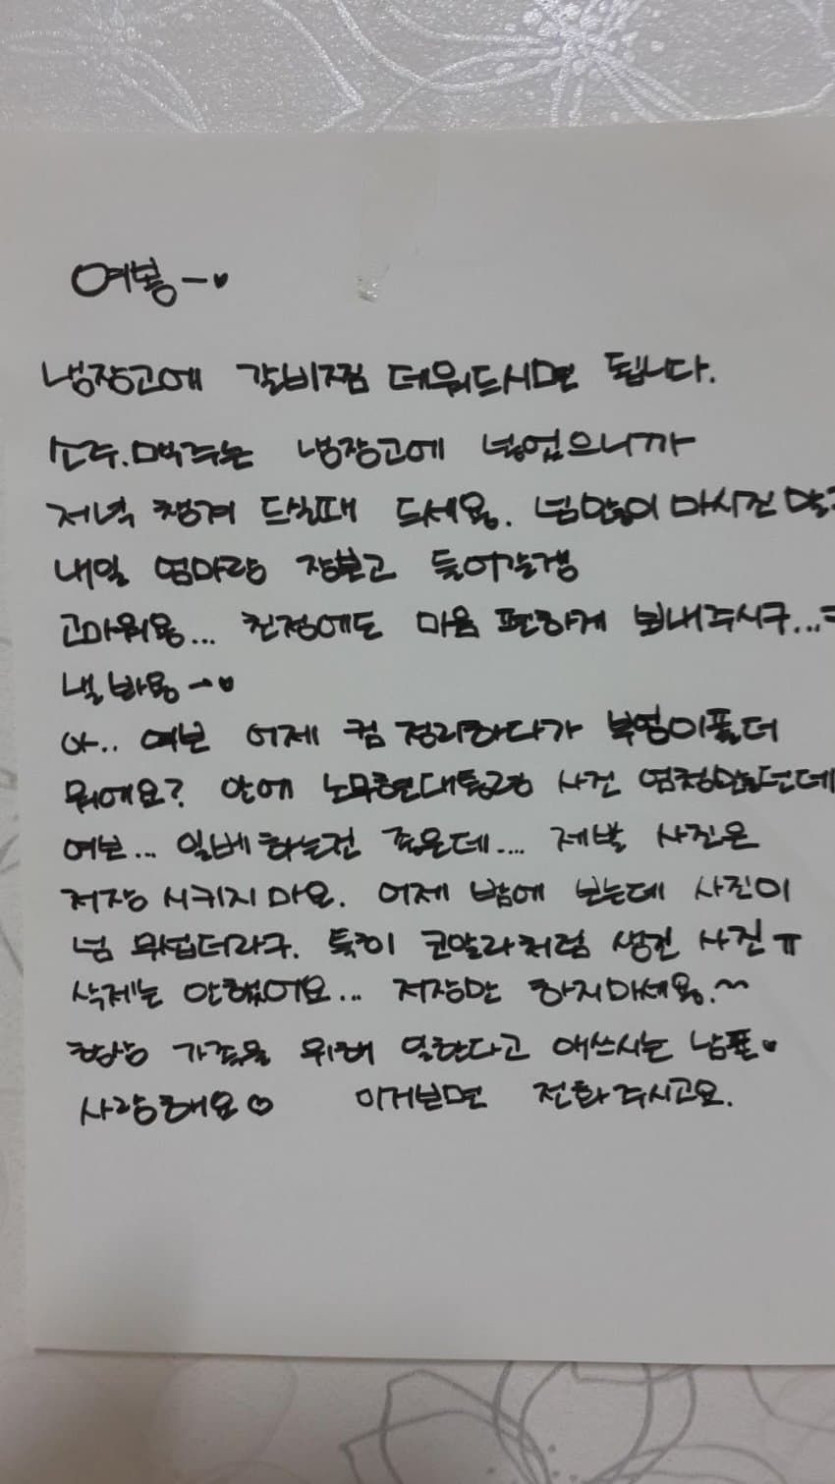 여봉~♥
냉장고에 갈비찜 데워드시면 됩니다.
소주.맥주는 냉장고에 넣었으니까
저녁 챙겨 드실때 드세용. 넘많이 마시진 말
내일 엄마랑 장보고 들어갈갱
고마워용... 친정에도 마음 편하게 보내주시구...
낼 바용~♥
아.. 여보 어제 컴 정리하다가 부엉이폴더
뭐에요? 안에 노무현대통령 사진 엄청많던데
여보... 일베하는건 좋은데.... 제발 사진은
저장 시키지마요. 어제 밤에 보는데 사진이
넘 무섭더라구. 특히 코알라처럼 생긴 사진ㅠ
삭제는 안했어요... 저장만 하지마세용.~
항상 가족을 위해 일한다고 애쓰시는 남푠♥
사랑해요♡ 이거보면 전화주시고요.